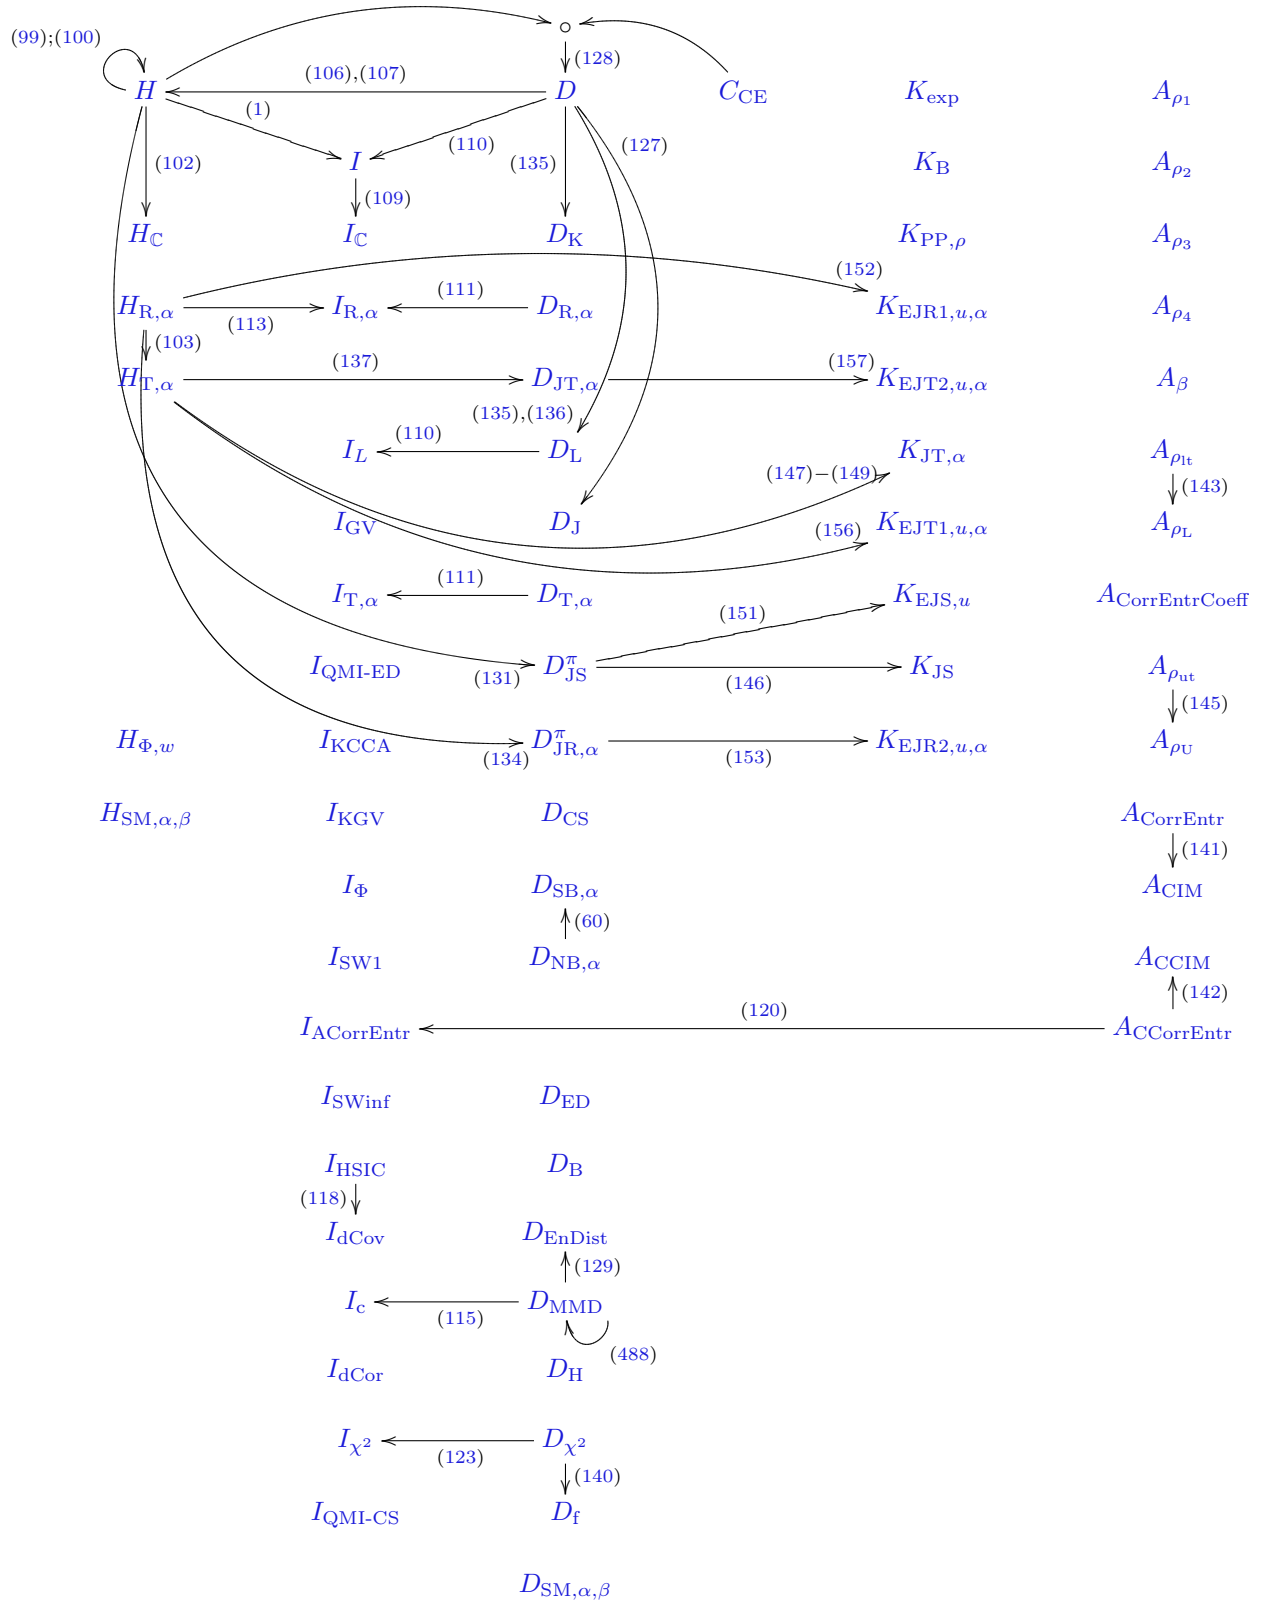 (99);(100)
∘
(128)
(106),(107)
H D C_CE K_exp A_ρ₁
(1)
(110) (127)
(102) I (135) K_B A_ρ₂
(109)
H_ℂ I_ℂ D_K K_PP,ρ A_ρ₃
(152)
(111)
H_R,α I_R,α D_R,α K_EJR1,u,α A_ρ₄
(113)
(103)
(137) (157)
H_T,α D_JT,α K_EJT2,u,α A_β
(135),(136)
(110)
I_L D_L K_JT,α A_ρ_lt
(147)−(149) (143)
I_GV D_J K_EJT1,u,α A_ρ_L
(156)
(111)
I_T,α D_T,α K_EJS,u A_CorrEntrCoeff
(151)
I_QMI-ED D^π_JS K_JS A_ρ_ut
(131) (146)
(145)
H_Φ,w I_KCCA D^π_JR,α K_EJR2,u,α A_ρ_U
(134) (153)
H_SM,α,β I_KGV D_CS A_CorrEntr
(141)
I_Φ D_SB,α A_CIM
(60)
I_SW1 D_NB,α A_CCIM
(142)
(120)
I_ACorrEntr A_CCorrEntr
I_SWinf D_ED
I_HSIC D_B
(118)
I_dCov D_EnDist
(129)
I_c D_MMD
(115)
(488)
I_dCor D_H
I_χ² D_χ²
(123)
(140)
I_QMI-CS D_f
D_SM,α,β